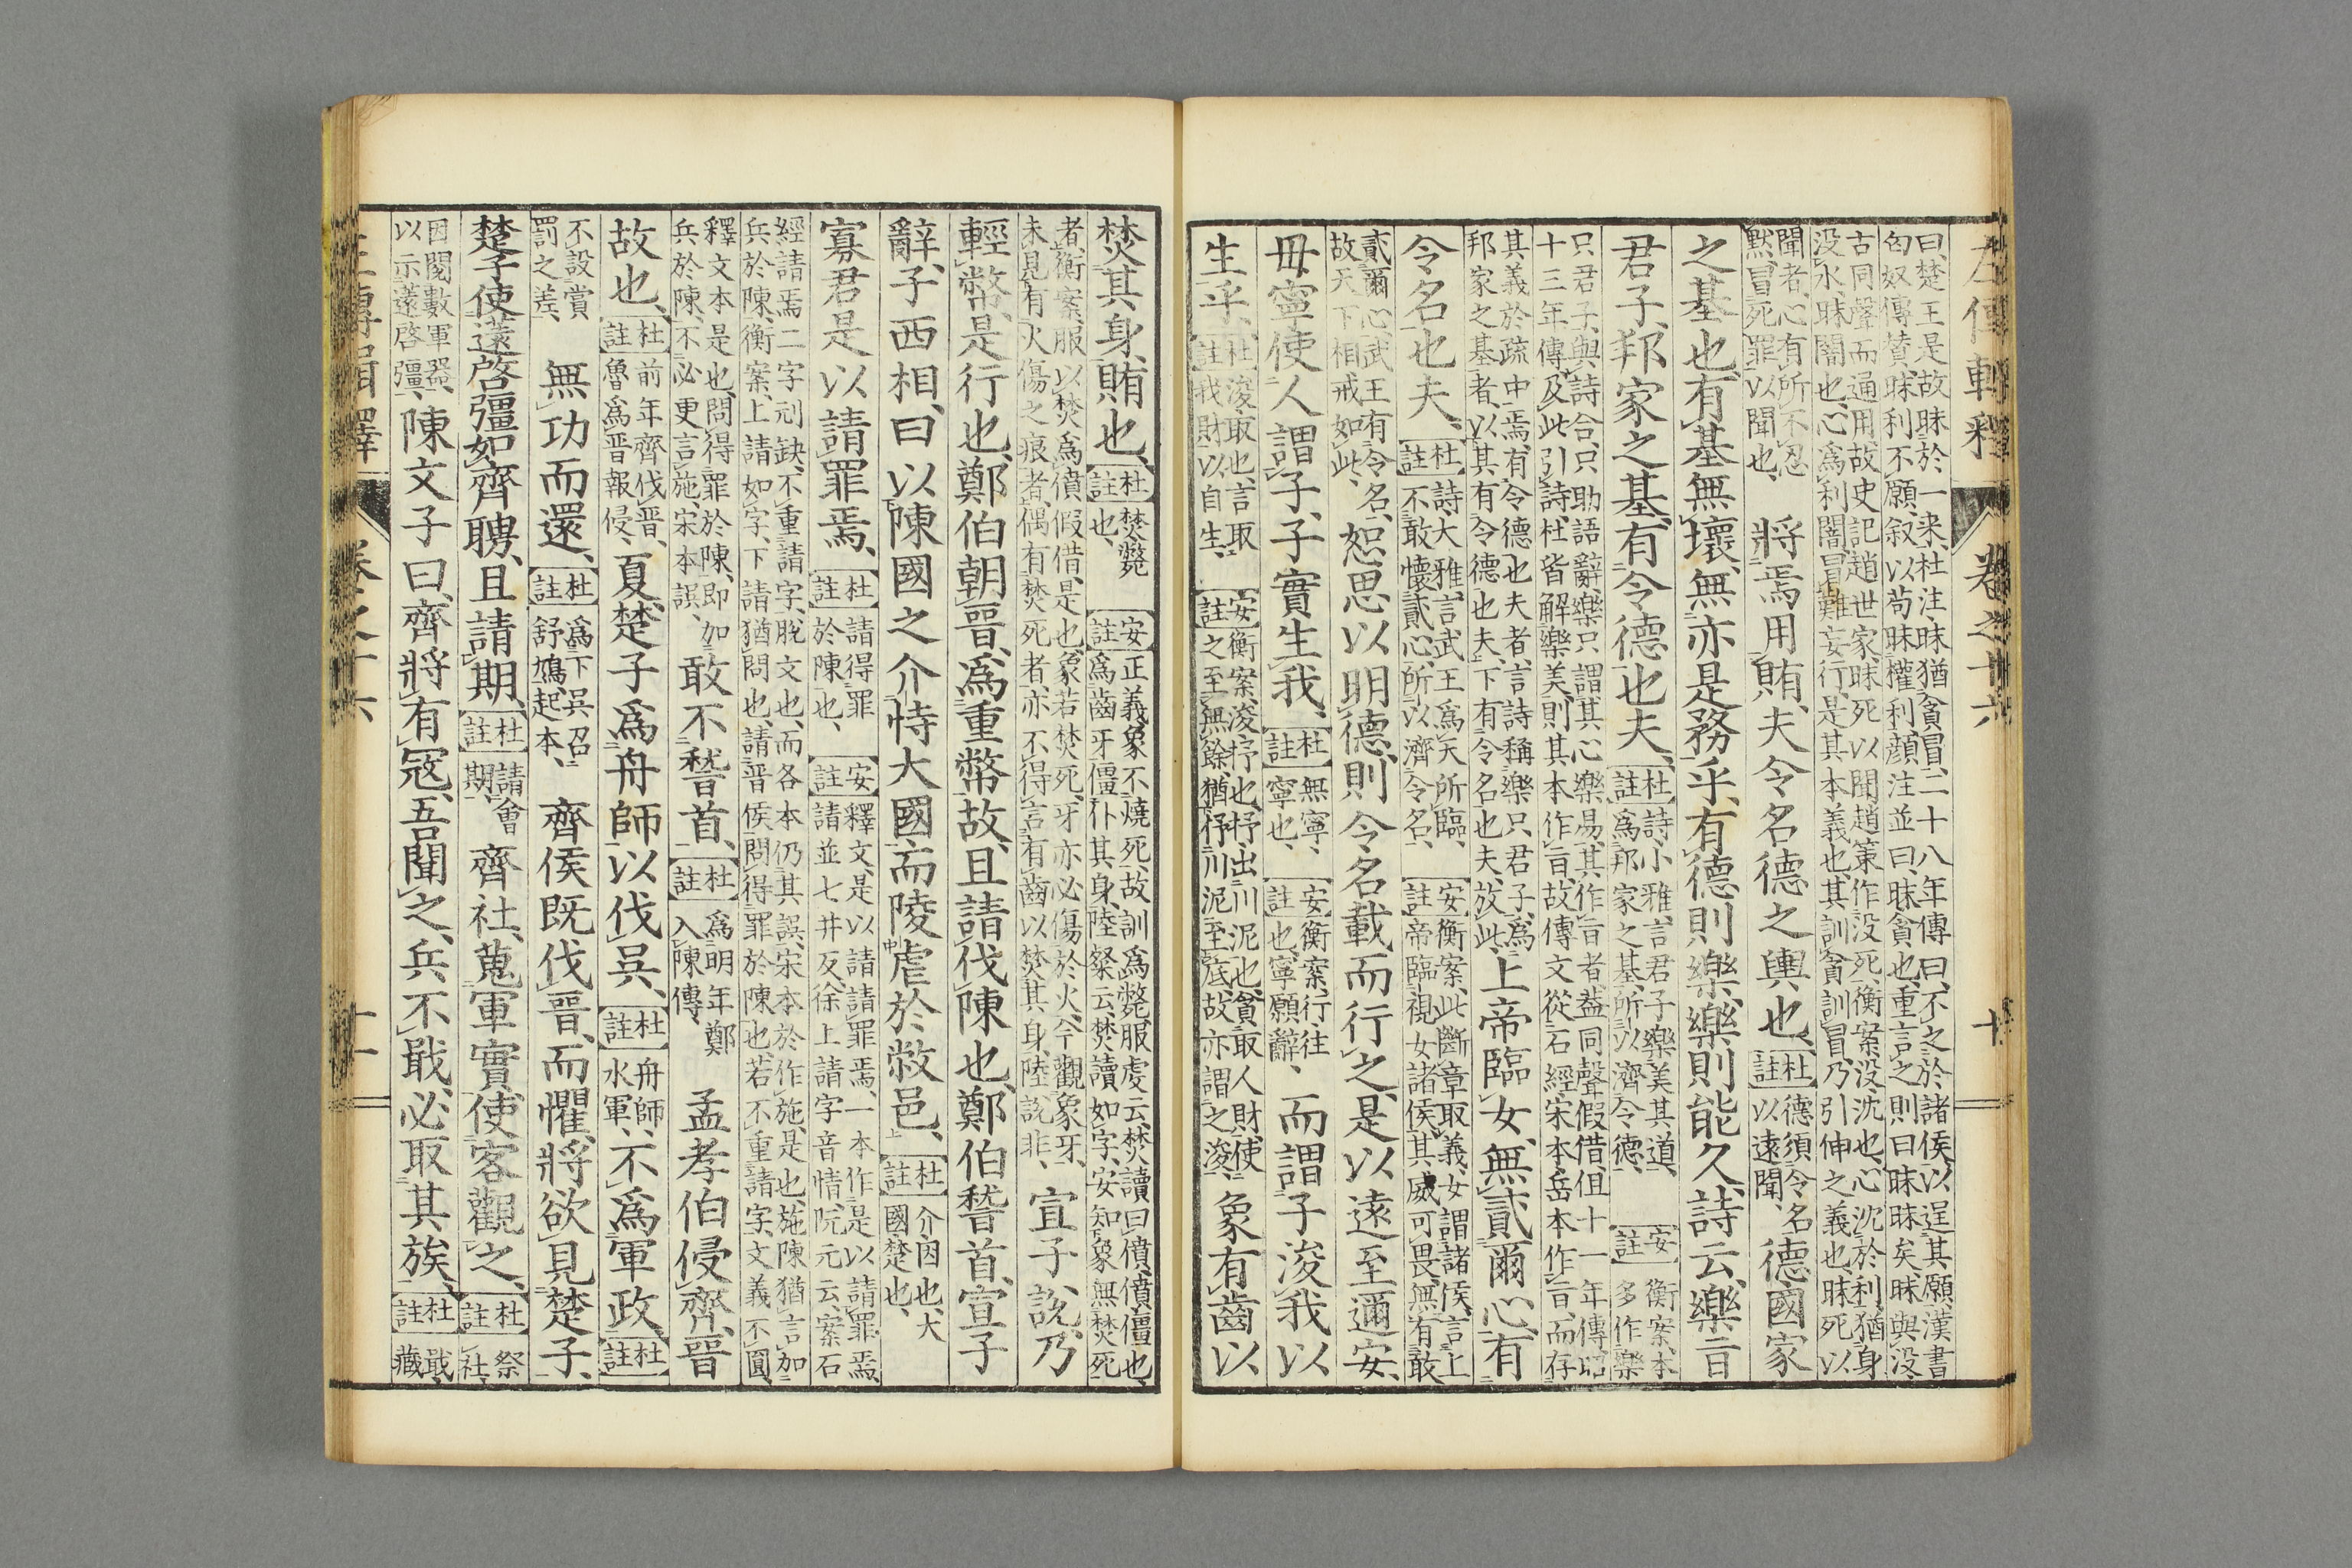 左傳輯釋 卷之十六 十
曰楚王是故昧於一来杜注昧猶貪冒二十八年傳曰不之於諸侯以逞其願漢書
匈奴傳贊昧利不願叙以苟昧權利顔注並曰昧貪也重言之則曰昧昧矣昧與没
古同聲而通用故史記趙世家昧死以聞趙策作没死衡案没沈也心沈於利猶身
没水昧闇也心為利闇冒難妄行是其本義也其訓貪訓冒乃引伸之義也昧死以
聞者心有所不忍
黙冒死罪以聞也
將焉用賄夫令名德之輿也
杜註 德須令名
以遠聞
德國家
之基也有基無壞無亦是務乎有德則樂樂則能久詩云樂旨
君子邦家之基有令德也夫
杜註 詩小雅言君子樂美其道
為邦家之基所以濟令德
安註 衡案本
多作樂
只君子與詩合只助語辭樂只謂其心樂易其作旨者葢同聲假借但十一年傳昭
十三年傳及此引詩杜皆解樂美則其本作旨故傳文從石經宋本岳本作旨而存
其義於疏中焉有令德也夫者言詩稱樂只君子為
邦家之基者以其有令德也夫下有令名也夫放此
上帝臨女無貳爾心有
令名也夫
杜註 詩大雅言武王為天所臨
不敢懷貳心所以濟令名
安註 衡案此斷章取義女謂諸侯言上
帝臨視女諸侯其威可畏無有敢
貳爾心武王有令名
故天下相戒如此
恕思以明德則令名載而行之是以遠至邇安
毋寧使人謂子子實生我
杜註 無寧
寧也
安註 衡案行往
也寧願辭
而謂子浚我以
生乎
杜註 浚取也言取
我財以自生
安註 衡案浚抒也抒出川泥也貪取人財使
之至無餘猶抒川泥至底故亦謂之浚
象有齒以
焚其身賄也
杜註 焚斃
也
安註 正義象不燒死故訓為斃服虔云焚讀曰僨僨僵也
為齒牙僵仆其身陸粲云焚讀如字安知象無焚死
者衡案服以焚為僨假借是也象若焚死牙亦必傷於火今觀象牙
未見有火傷之痕者偶有焚死者亦不得言有齒以焚其身陸說非
宣子說乃
輕幣是行也鄭伯朝晉為重幣故且請伐陳也鄭伯稽首宣子
辭子西相曰以陳國之介恃大國而陵虐於敝邑
杜註 介因也大
國楚也
寡君是以請罪焉
杜註 請得罪
於陳也
安註 釋文是以請請罪焉一本作是以請罪焉
請並七井反徐上請字音情阮元云案石
經請焉二字刓缺不重請字脫文也而各本仍其誤宋本於作施是也施陳猶言加
兵於陳衡案上請如字下請猶問也請晉侯問得罪於陳也若不重請字文義不圓
釋文本是也問得罪於陳即加
兵於陳不必更言施宋本誤
敢不稽首
杜註 為明年鄭
入陳傳
孟孝伯侵齊晉
故也
杜註 前年齊伐晉
魯為晉報侵
夏楚子為舟師以伐吳
杜註 舟師
水軍
不為軍政
杜註
不設賞
罰之差
無功而還
杜註 為下吳召
舒鳩起本
齊侯既伐晉而懼將欲見楚子
楚子使薳啓彊如齊聘且請期
杜註 請會
期
齊社蒐軍實使客觀之
杜註 祭
社
因閱數軍器
以示薳啓彊
陳文子曰齊將有寇吾聞之兵不戢必取其族
杜註 戢
藏
卷之十六 十一